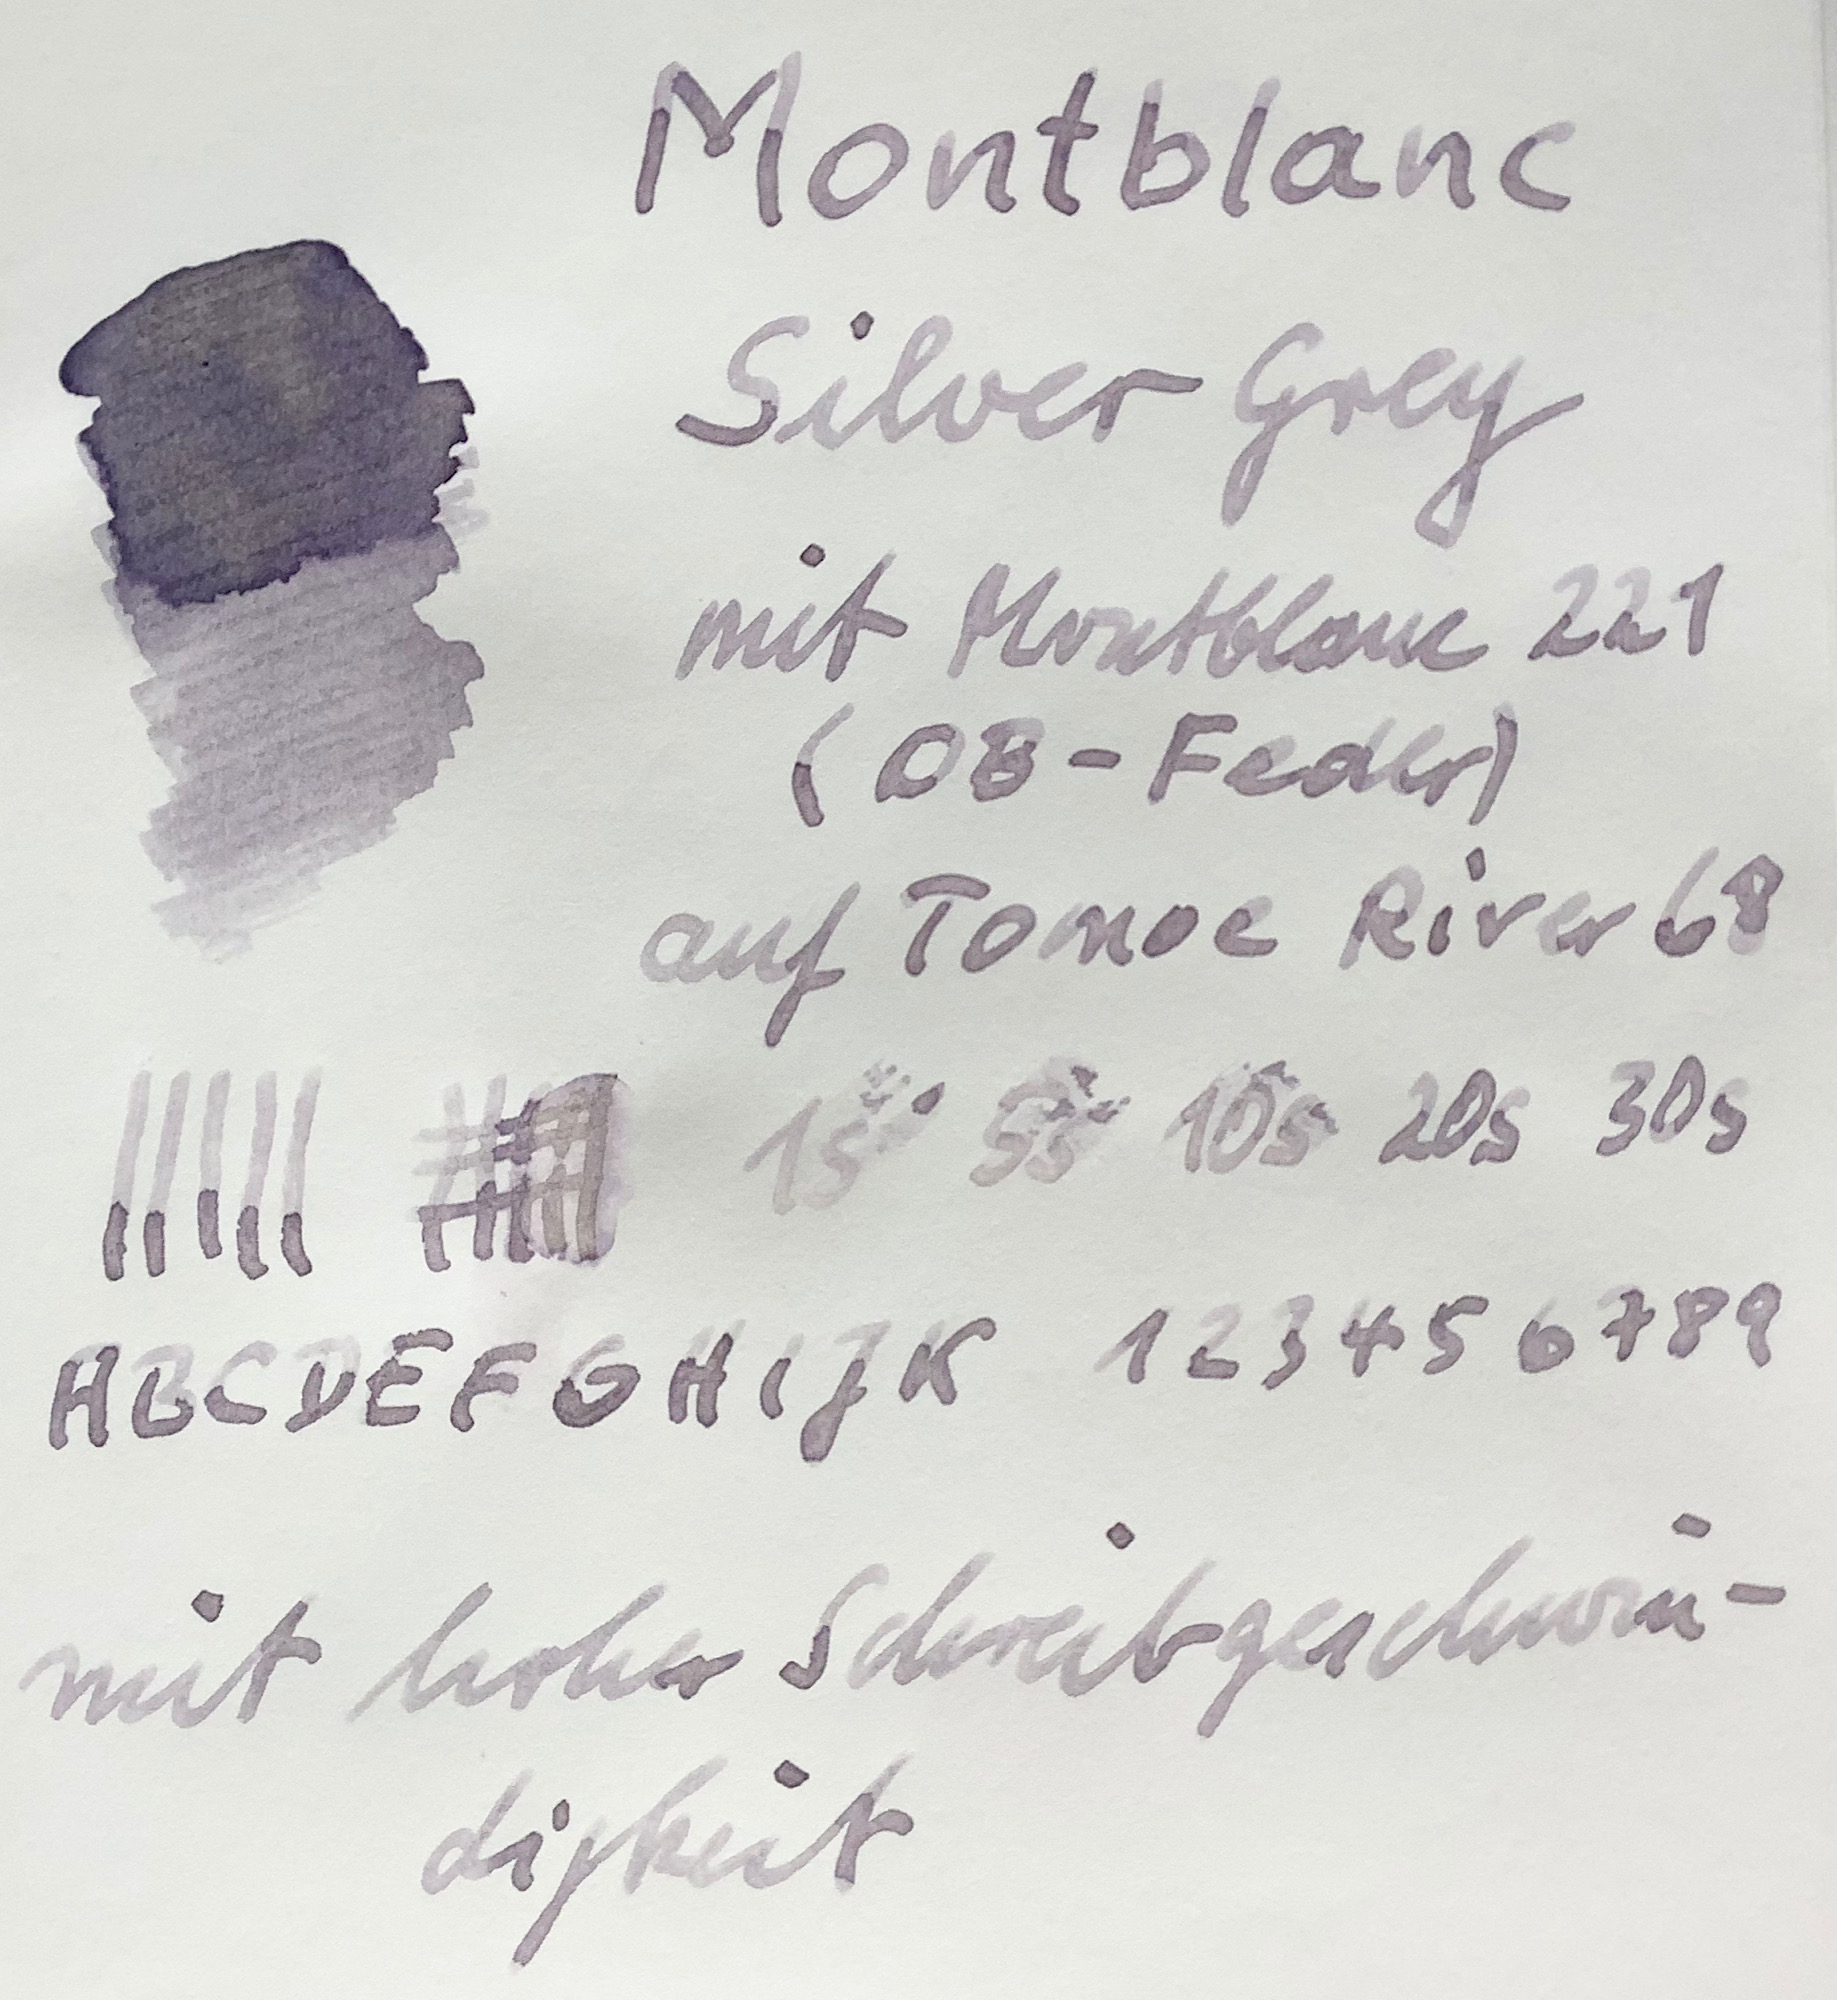 Montblanc
Silver Grey
mit Montblanc 221
(OB-Feder)
auf Tomoe River 68
1s 5s 10s 20s 30s
ABCDEFGHIJK 123456789
mit hoher Schreibgeschwin-
digkeit